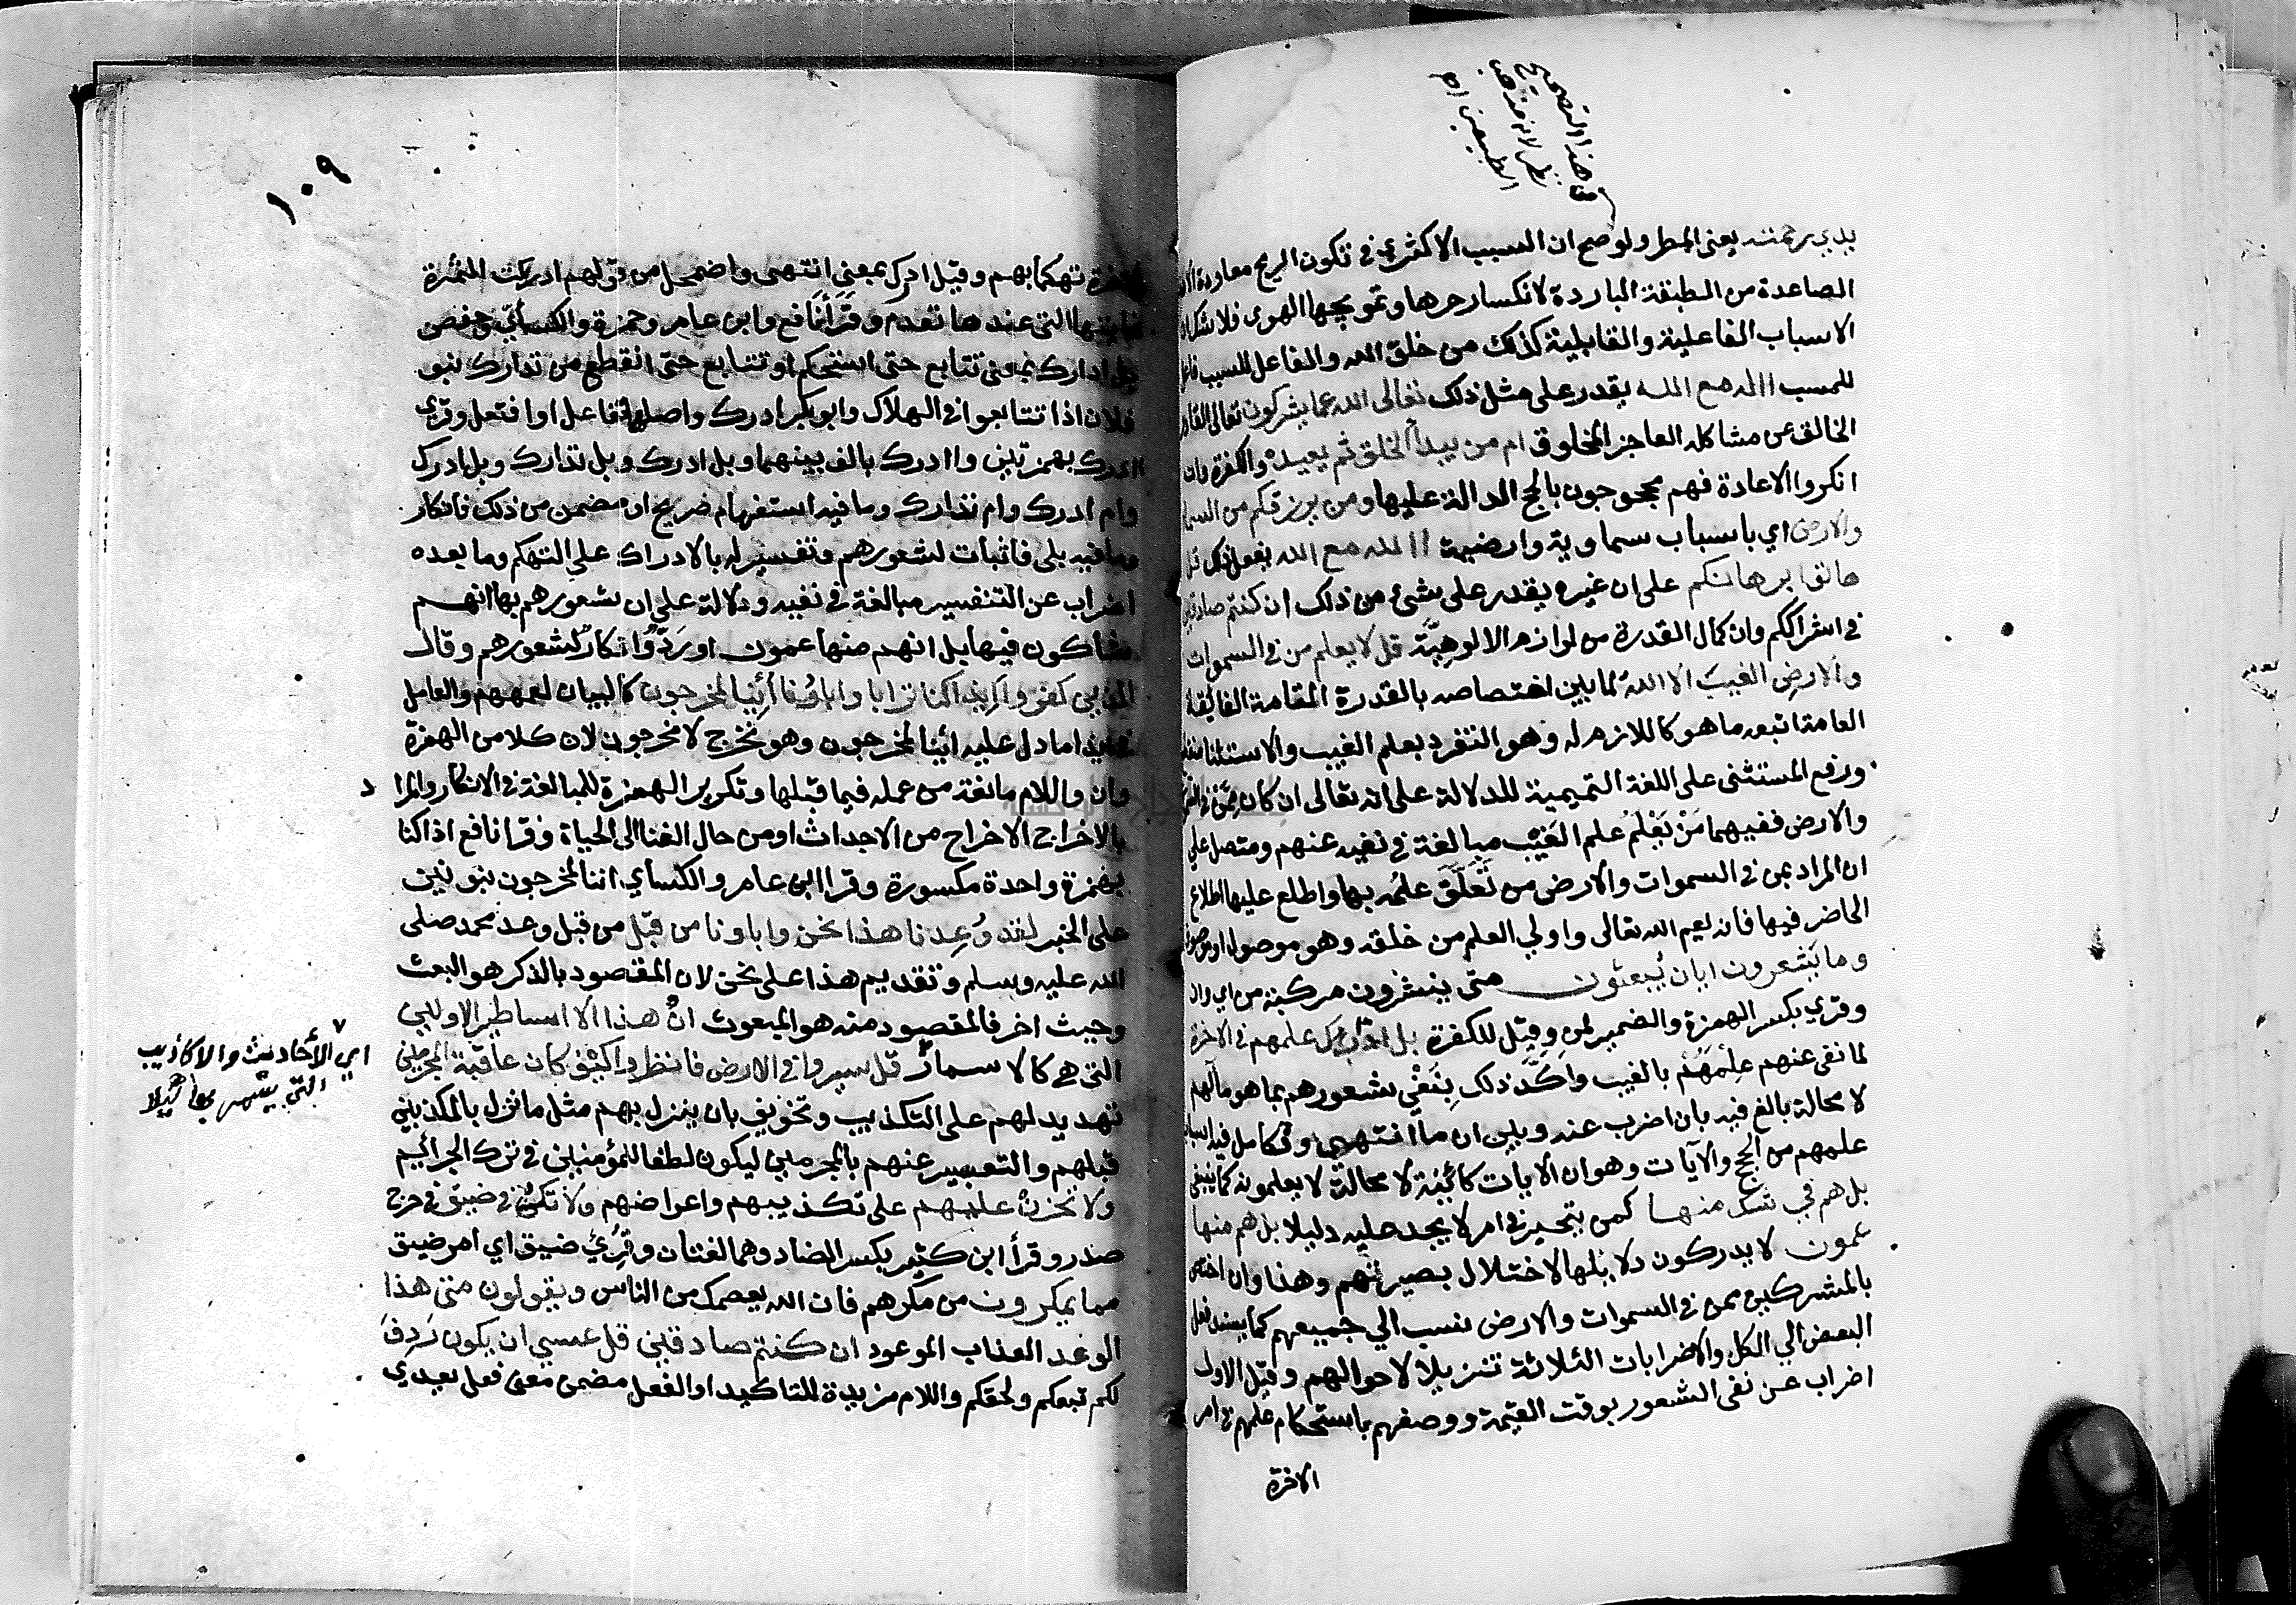 في هذا التصحيح
نظر لانه مذهب
الطبيعين اص
يدي رحمته يعني المطر ولو صح ان السبب الاكثري في تكون الريح معاودة
الصاعدة من الطبقة الباردة لانكسار حرها وتمويجها الهوى فلا شك ان
الاسباب الفاعلية والقابلية كذلك من خلق الله والفاعل للسبب فاعل
للمسبب االه مع الله يقدر على مثل ذلك تعالى الله عما يشركون تعالى القادر
الخالق عن مشاكله العاجز المخلوق ام من يبدأ الخلق ثم يعيده والكفرة وان
انكروا الاعادة فهم محجوجون بالحجج الدالة عليها ومن يرزقكم من السما
والارض اي باسباب سماوية وارضية االه مع الله يفعل ذلك قل
هاتوا برهانكم على ان غيره يقدر على شئ من ذلك ان كنتم صادقين
في اشراككم وان كمال القدرة من لوازم الالوهيّة قل لا يعلم من في السموات
والارض الغيب الا الله لما بين اختصاصه بالقدرة المقامة الفائقة
العامة اتبعه ما هو كاللازم له وهو التفرد بعلم الغيب والاستثنا منقطع
ورفع المستثنى على اللغة التميمية للدلالة على انه تعالى ان كان ممّن في
والارض ففيهما مَنْ يَعْلمُ علم الغَيْب مبالغة في نفيه عنهم ومتصل على
ان المراد بمن في السموات والارض من تَعَلَّقَ علمُه بها واطلع عليها اطلاع
الحاضر فيها فانه يعم الله تعالى واولي العلم من خلقه وهو موصول او موصوف
وما يَشعرون ايان يُبعثون متى ينشرون مركبة من اي وان
وقري بكسر الهمزة والضمير لمن وقيل للكفرة بل ادّارك علمهم في الاخرة
لما نفى عنهم عِلمَهُمْ بالغيب واَكَّد ذلك بِنَفْي شعورهم بما هو مآلهم
لا محالة بالغ فيه بان اضرب عنه وبين ان ما انتهى وتكامل فيه اسباب
علمهم من الحجج والآيات وهو ان الايات كائنة لا محالة لا يعلمونه كما ينبغي
بل هم في شك منها كمن يتحير في امر لا يجد عليه دليلا بل هم منها
عمون لا يدركون دلايلها لاختلال بصيرتهم وهذا وان اختص
بالمشركين ممن في السموات والارض نسب الي جميعهم كما يسند فعل
البعض الي الكل والاضرابات الثلاثة تنزيلا لاحوالهم وقيل الاول
اضراب عن نفي الشعور بوقت القيمة ووصفهم باستحكام علمهم في امر
الاخرة
١٠٩
الاخرة تهكما بهم وقيل ادرك بمعنى انتهى واضمحل من قولهم ادركت الثمرة
لانها التي عندها تعدم وقَرَأَ نافع وابن عامر وحمزة والكسأئي وحفص
بل ادارك بمعنى تتابع حتى استحكم او تتابع حتى انقطع من تدارك بنو
فلان اذا تتابعوا في الهلاك وابو بكر ادرك واصلهما تفاعل او افتعل وقري
اادرك بهمزتين واادرك بالف بينهما وبل ادرك وبل تدارك وبل اادرك
وام ادرك وام تدارك وما فيه استفهام صريح او مضمن من ذلك فانكار
وما فيه بلى فاثبات لشعورهم وتفسير له بالادراك على التهكم وما بعده
اضراب عن التفسير مبالغة في نفيه ودلالة علي ان شعورهم بها انهم
شاكون فيها بل انهم منها عمون او رَدّ وانكار لشعورهم وقال
الذين كفروا ائذا كنا ترابا واباؤنا أئنا لمخرجون كالبيان لعمههم والعامل
في اذا ما دل عليه أئنا لمخرجون وهو نخرج لا مخرجون لان كلا من الهمزة
وان واللام مانعة من عمله فيما قبلها وتكرير الهمزة للمبالغة في الانكار والمراد
بالاخراج الاخراج من الاجداث او من حال الفنا الى الحياة وقرا نافع اذا كنا
بهمزة واحدة مكسورة وقرا ابن عامر والكسأي اننا لمخرجون بنونين
على الخبر لقد وُعِدنا هذا نحن واباونا من قبل من قبل وعد محمد صلى
الله عليه وسلم وتقديم هذا على نحن لان المقصود بالذكر هو البعث
وحيث اخر فالمقصود منه هو المبعوث ان هذا الا اساطير الاولين
التي هي كالاسمار قل سيروا في الارض فانظروا كيف كان عاقبة المجرمين
تهديد لهم على التكذيب وتخويف بان ينزل بهم مثل ما نزل بالمكذبين
قبلهم والتعبير عنهم بالمجرمين ليكون لطفا للمؤمنين في ترك الجرائيم
ولا تحزن عليهم على تكذيبهم واعراضهم ولا تكن في ضيق في حرج
صدر وقرأ ابن كثير بكسر الضاد وهما لغتان وقُرئ ضيق اي امر ضيق
مما يمكرون من مكرهم فان الله يعصمك من الناس ويقولون متى هذا
الوعد العذاب الموعود ان كنتم صادقين قل عسى ان يكون رَدِفَ
لكم تبعكم ولحقكم واللام مزيدة للتاكيد او الفعل مضمن معنى فعل يعدي
اي الأحاديث والاكاذيب
التي يتسمر بها ليلا